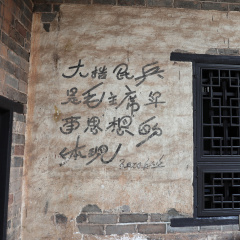 大搞民兵
是毛主席军
事思想的
体现